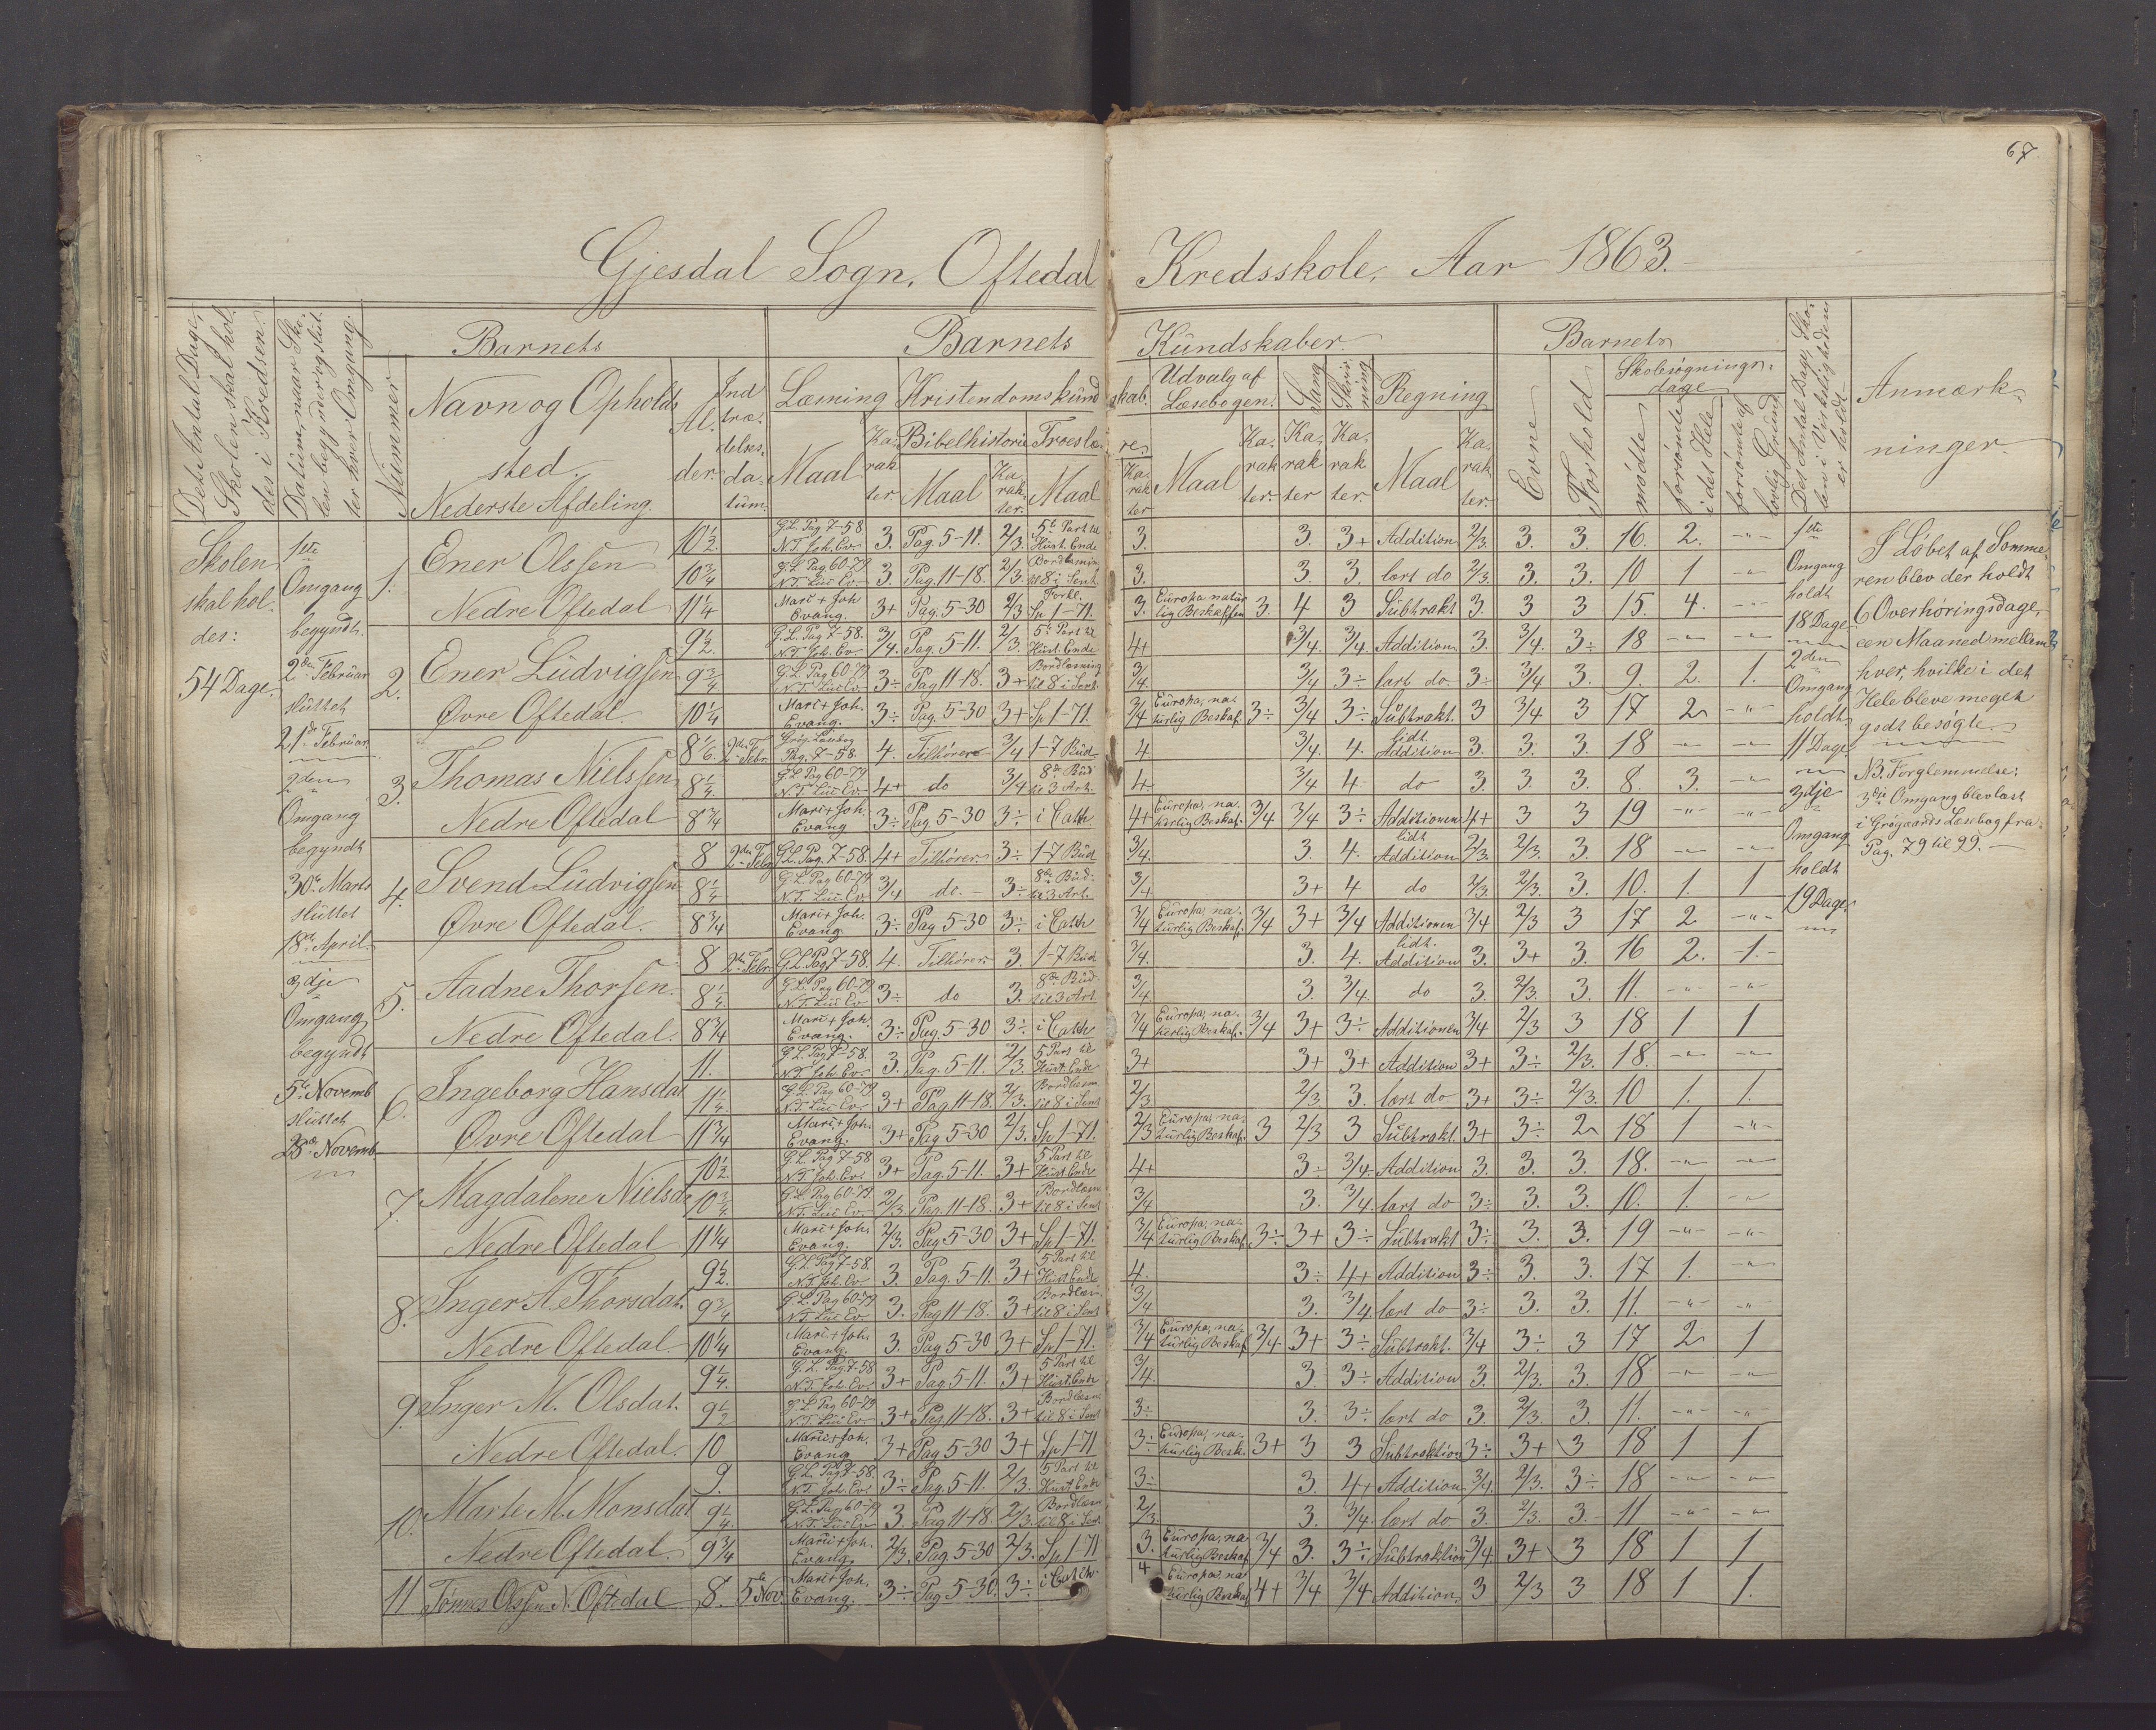 67
Gjesdal Sogn, Oftedal Kredsskole, Aar 1863.
Det Antal Dage, Skolen skal holdes i Kredsen
Datum, naar Skolen begynder og slutter hver Omgang.
Nummer
Barnets
Navn og Opholdssted.
Nederste Afdeling.
Alder.
Indtrædelsesdatum.
Barnets Kundskaber.
Læsning
Maal
Karakter.
Kristendomskundskab.
Bibelhistorie
Maal
Karakter.
Troeslære
Maal
Karakter
Udvalg af Læsebogen.
Maal
Karakter.
Sang
Karakter
Skrivning
Karakter.
Regning
Maal
Karakter.
Barnets
Evne
Forhold
Skolesøgningsdage
mødte
forsømte i det Hele
forsømte af lovlig Grund
Det Antal Dage, Skolen i Virkeligheden er holdt
Anmærkninger.
Skolen
skal hol-
des:
54 Dage.
1ste
Omgang
begyndt
2den Februar
sluttet
21de Februar
2den
Omgang
begyndt
30te Marts
sluttet
18de April.
3dje
Omgang
begyndt
5te Novemb
sluttet
25de Novemb.
1. Ener Olssen
Nedre Oftedal
10½ G.L. Pag 7-58 N.T. Joh. Ev. 3. Pag. 5-11. 2/3. 5te Part til Hust. Ende 3. 3. 3+ Addition 2/3. 3. 3. 16. 2. -"-
10¾ G.L. Pag 60-79 N.T. Luc Ev. 3. Pag. 11-18. 2/3. Bordlæsning til 8 i Sent. 3. 3. 3. lært do 2/3. 3. 3. 10 1 -"-
11¼ Marc + Joh Evang. 3+ Pag. 5-30 2/3 Forkl. Sp 1-71. 3. Europa natur lig Beskaffen 3. 4 3 Subtrakt 3 3 3 15. 4. -"-
2. Ener Ludvigssen
Øvre Oftedal.
9½ G.L. Pag 7-58. N.T. Joh. Ev. 3/4. Pag. 5-11. 2/3. 5te Part til Hust. Ende 4+ 3/4. 3/4. Addition 3. 3/4. 3÷ 18 -"- -"-
9¾ G.L. Pag 60-79 N.T. Luc Ev. 3÷ Pag 11-18. 3+ Bordlæsning til 8 i Sent. 3/4. 3/4 3÷ lært do. 3÷ 3/4 3. 9. 2. 1.
10¼ Marc + Joh. Evang. 3÷ Pag. 5-30 3+ Sp 1-71. 3/4 Europa, na- turlig Beskaf. 3÷ 3/4 3÷ Subtrakt. 3 3/4 3 17 2 -"-
3. Thomas Nielssen
Nedre Oftedal
8 1/6 2den Febr. Grøg. Læsebog Pag. 7-58. 4. Tilhører 3/4 1-7 Bud 4 3/4. 4. lidt Addition 3. 3. 3. 18 -"- -"-
8¼. G.L. Pag 60-79 N.T. Luc Ev. 4+ do 3/4 8de Bud til 3 Art. 4. 3/4 4. do 3. 3. 3. 8. 3. -"-
8¾ Marc + Joh. Evang 3÷ Pag 5-30 3÷ i Cath 4+ Europa, na- turlig Beskaf. 3/4 3/4 3÷ Additionen 4+ 3 3 19 -"- -"-
4. Svend Ludvigssen
Øvre Oftedal.
8 2den Febr G.L. Pag. 7-58. 4+ Tilhører 3÷ 1-7 Bud 3/4. 3. 4. lidt Addition 2/3. 2/3. 3. 18 -"- -"-
8¼ G.L. Pag 60-79 N.T. Luc Ev. 3/4 do. 3÷ 8de Bud til 3 Art. 3/4 3+ 4 do 2/3. 2/3. 3. 10. 1. 1
8¾ Marc + Joh. Evang. 3÷ Pag 5-30 3÷ i Cath 3/4 Europa, na- turlig Beskaf. 3/4 3+ 3/4 Additionen 3/4 2/3 3 17 2 -"-
5. Aadne Thorssen.
Nedre Oftedal.
8 2den Febr. G.L. Pag. 7-58. 4. Tilhører. 3. 1-7 Bud 3/4. 3. 4. lidt Addition 3. 3+ 3. 16 2. -1.-
8¼. G.L. Pag 60-79 N.T. Luc Ev. 3÷ do 3. 8de Bud til 3 Art. 3/4 3. 3/4. do 3. 2/3. 3. 11. -"- -"-
8¾ Marc + Joh. Evang. 3÷ Pag. 5-30 3÷ i Cath 3/4 Europa, na- turlig Beskaf. 3/4 3+ 3÷ Additionen 3/4 2/3 3 18 1 1
6. Ingeborg Hansdat.
Øvre Oftedal
11. G.L. Pag 7-58. N.T. Joh. Ev. 3. Pag. 5-11. 2/3. 5 Part til Hust. Ende 3+ 3+ 3+ Addition 3+ 3÷ 2/3. 18. -"- -"-
11¼. G.L. Pag 60-79 N.T. Luc Ev. 3+ Pag 11-18. 2/3. Bordlæsn til 8 i Sent 2/3 2/3. 3. lært do 3+ 3÷ 2/3. 10 1. 1.
11¾ Marc + Joh. Evang. 3+ Pag 5-30 2/3. Sp 1-71. 2/3 Europa, na- turlig Beskaf. 3 2/3 3 Subtrakt. 3+ 3÷ 2 18 1 -"-
7. Magdalene Nielsda
Nedre Oftedal
10½. G.L. Pag 7-58 N.T. Joh. Ev. 3+ Pag. 5-11. 3+ 5 Part til Hust. Ende 4+ 3÷ 3/4. Addition 3. 3. 3. 18. -"- -"-
10¾. G.L. Pag 60-79. N.T. Luc Ev. 2/3 Pag. 11-18. 3+ Bordlæsn til 8 i Sent 3/4 3. 3/4. lært do 3÷ 3. 3. 10. 1. -"-
11¼ Marc + Joh. Evang. 2/3. Pag 5-30 3+ Sp 1-71. 3/4 Europa, na- turlig Beskaf. 3÷ 3+ 3÷ Subtrakt 3÷ 3. 3. 19 -"- -"-
8. Inger A. Thorsdat.
Nedre Oftedal.
9½. G.L. Pag 7-58. N.T. Joh. Ev. 3. Pag. 5-11. 3+ 5 Part til Hust Ende 4. 3÷ 4+ Addition 3÷ 3. 3. 17 1. -"-
9¾ G.L. Pag 60-79 N.T. Luc Ev. 3. Pag 11-18. 3+ Bordlæsn til 8 i Sent 3/4 3. 3/4 lært do 3÷ 3. 3. 11. -"- -"-
10¼ Marc + Joh. Evang. 3. Pag 5-30 3+ Sp 1-71. 3/4 Europa, na- turlig Beskaf 3/4 3+ 3÷ Subtrakt. 3/4 3÷ 3 17 2 1
9. Inger M. Olsdat.
Nedre Oftedal.
9¼. G.L. Pag. 7-58 N.T. Joh. Ev. 3+ Pag 5-11. 3+ 5 Part til Hust. Ende 3/4. 3. 3÷ Addition 3. 2/3. 3. 18 -"- -"-
9½ G.L. Pag 60-79 N.T. Luc Ev. 3+ Pag 11-18. 3+ Bordlæsn til 8 i Sent 3÷ 3. 3÷ lært do 3. 2/3. 3. 11. -"- -"-
10 Marc + Joh. Evang 3+ Pag 5-30 3+ Sp 1-71 3÷ Europa, na- turlig Besk. 3+ 3 3 Subtraktion 3÷ 3+ 3 18 1 1
10. Marte M. Monsdat
Nedre Oftedal.
9. G.L. Pag 7-58. N.T. Joh. Ev. 3÷ Pag. 5-11. 2/3. 5 Part til Hust. Ende 3÷ 3. 4+ Addition 3/4. 2/3. 3÷ 18 -"- -"-
9¼. G.L. Pag 60-79 N.T. Luc Ev 3. Pag 11-18. 2/3. Bordlæsn til 8 i Sent. 2/3. 3. 3/4. lært do 3. 2/3. 3. 11 -"- -"-
9¾ Marc + Joh. Evang. 2/3. Pag. 5-30 2/3. Sp 1-71 3. Europa, na- turlig Beskaf 3/4 3. 3÷ Subtraktion 3/4. 3+ 3 18 1 1
11 Tønnes Olssen N. Oftedal 8. 5te Nov. Marc + Joh. Evang. 3÷ Pag 5-30. 3÷ i Cath. 4 Europa, na turlig Beskaf 4+ 3/4 3/4 Addition 3 2/3 3 18 1 1.
1ste
Omgang
holdt
18 Dage
2den
Omgang
holdt
11 Dage.
3dje
Omgang
holdt
19 Dage.
I Løbet af Somme-
ren blev der holdt
6 Overhøringsdage,
een Maaned mellem
hver, hvilke i det
Hele bleve meget
godt besøgte.
NB. Forglemmelse:
3die Omgang blev læst
i Grøgaards Læsebog fra
Pag. 79 til 99.